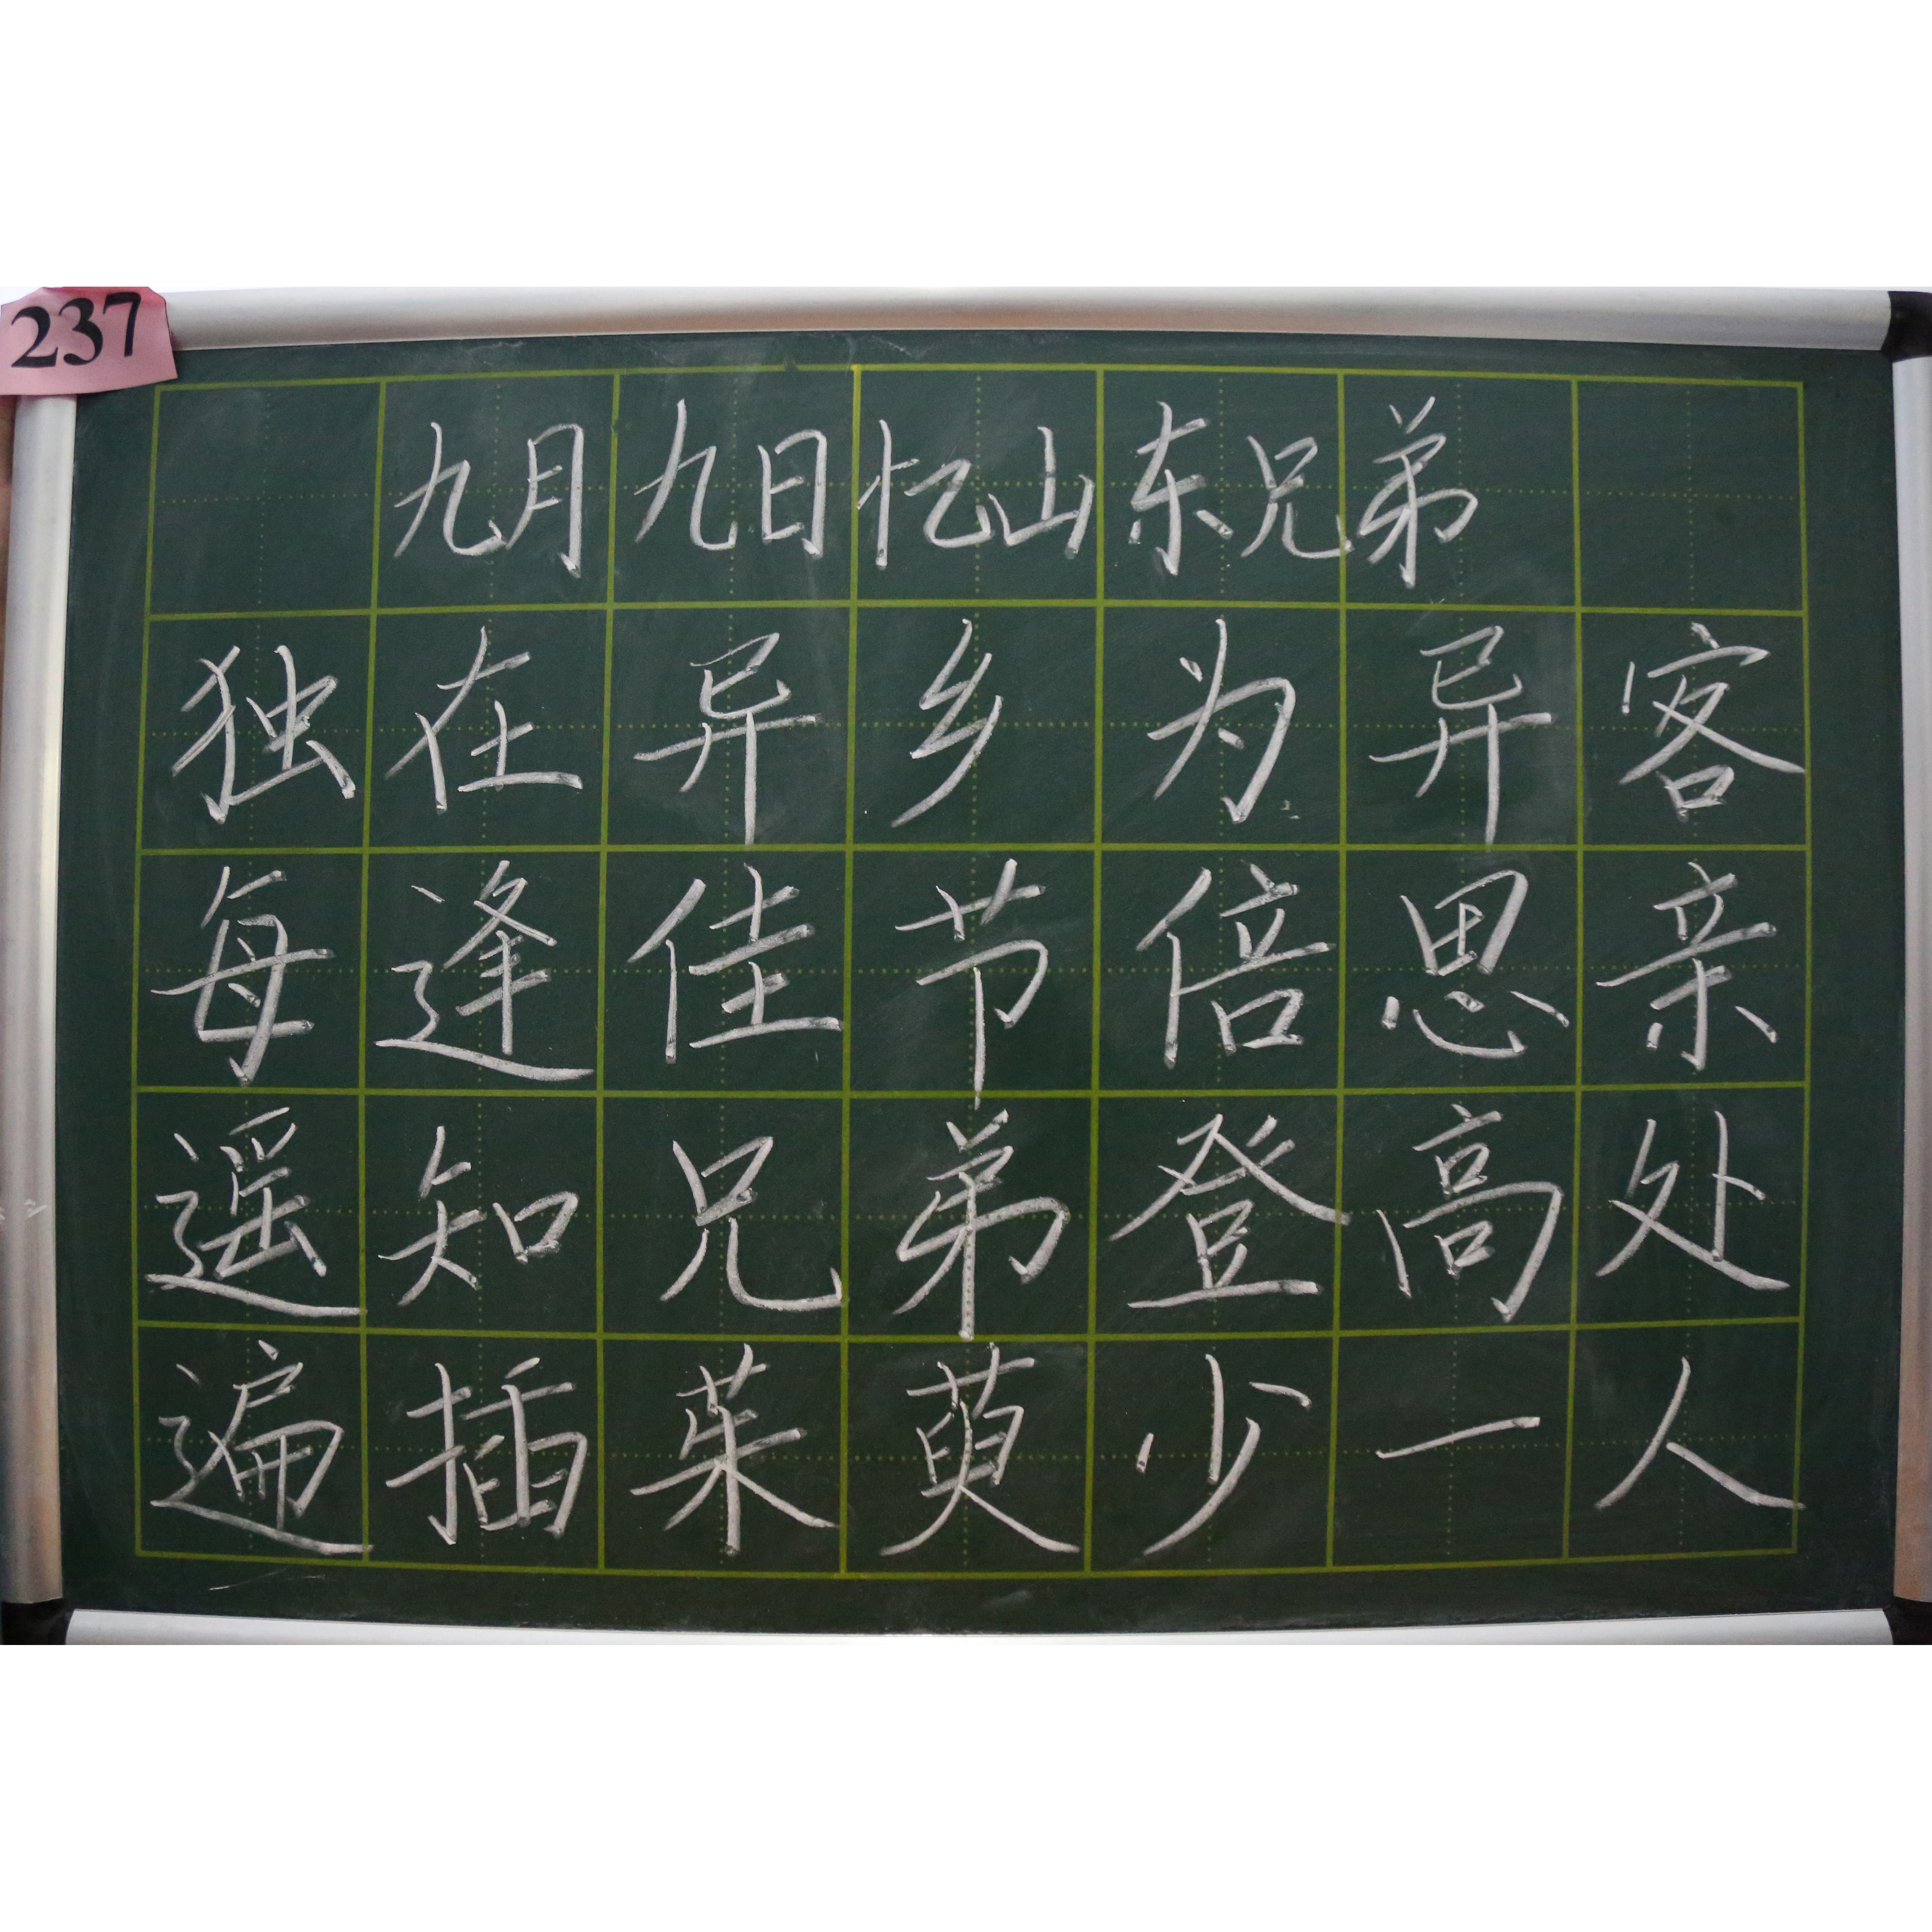 237
九月九日忆山东兄弟
独在异乡为异客
每逢佳节倍思亲
遥知兄弟登高处
遍插茱萸少一人